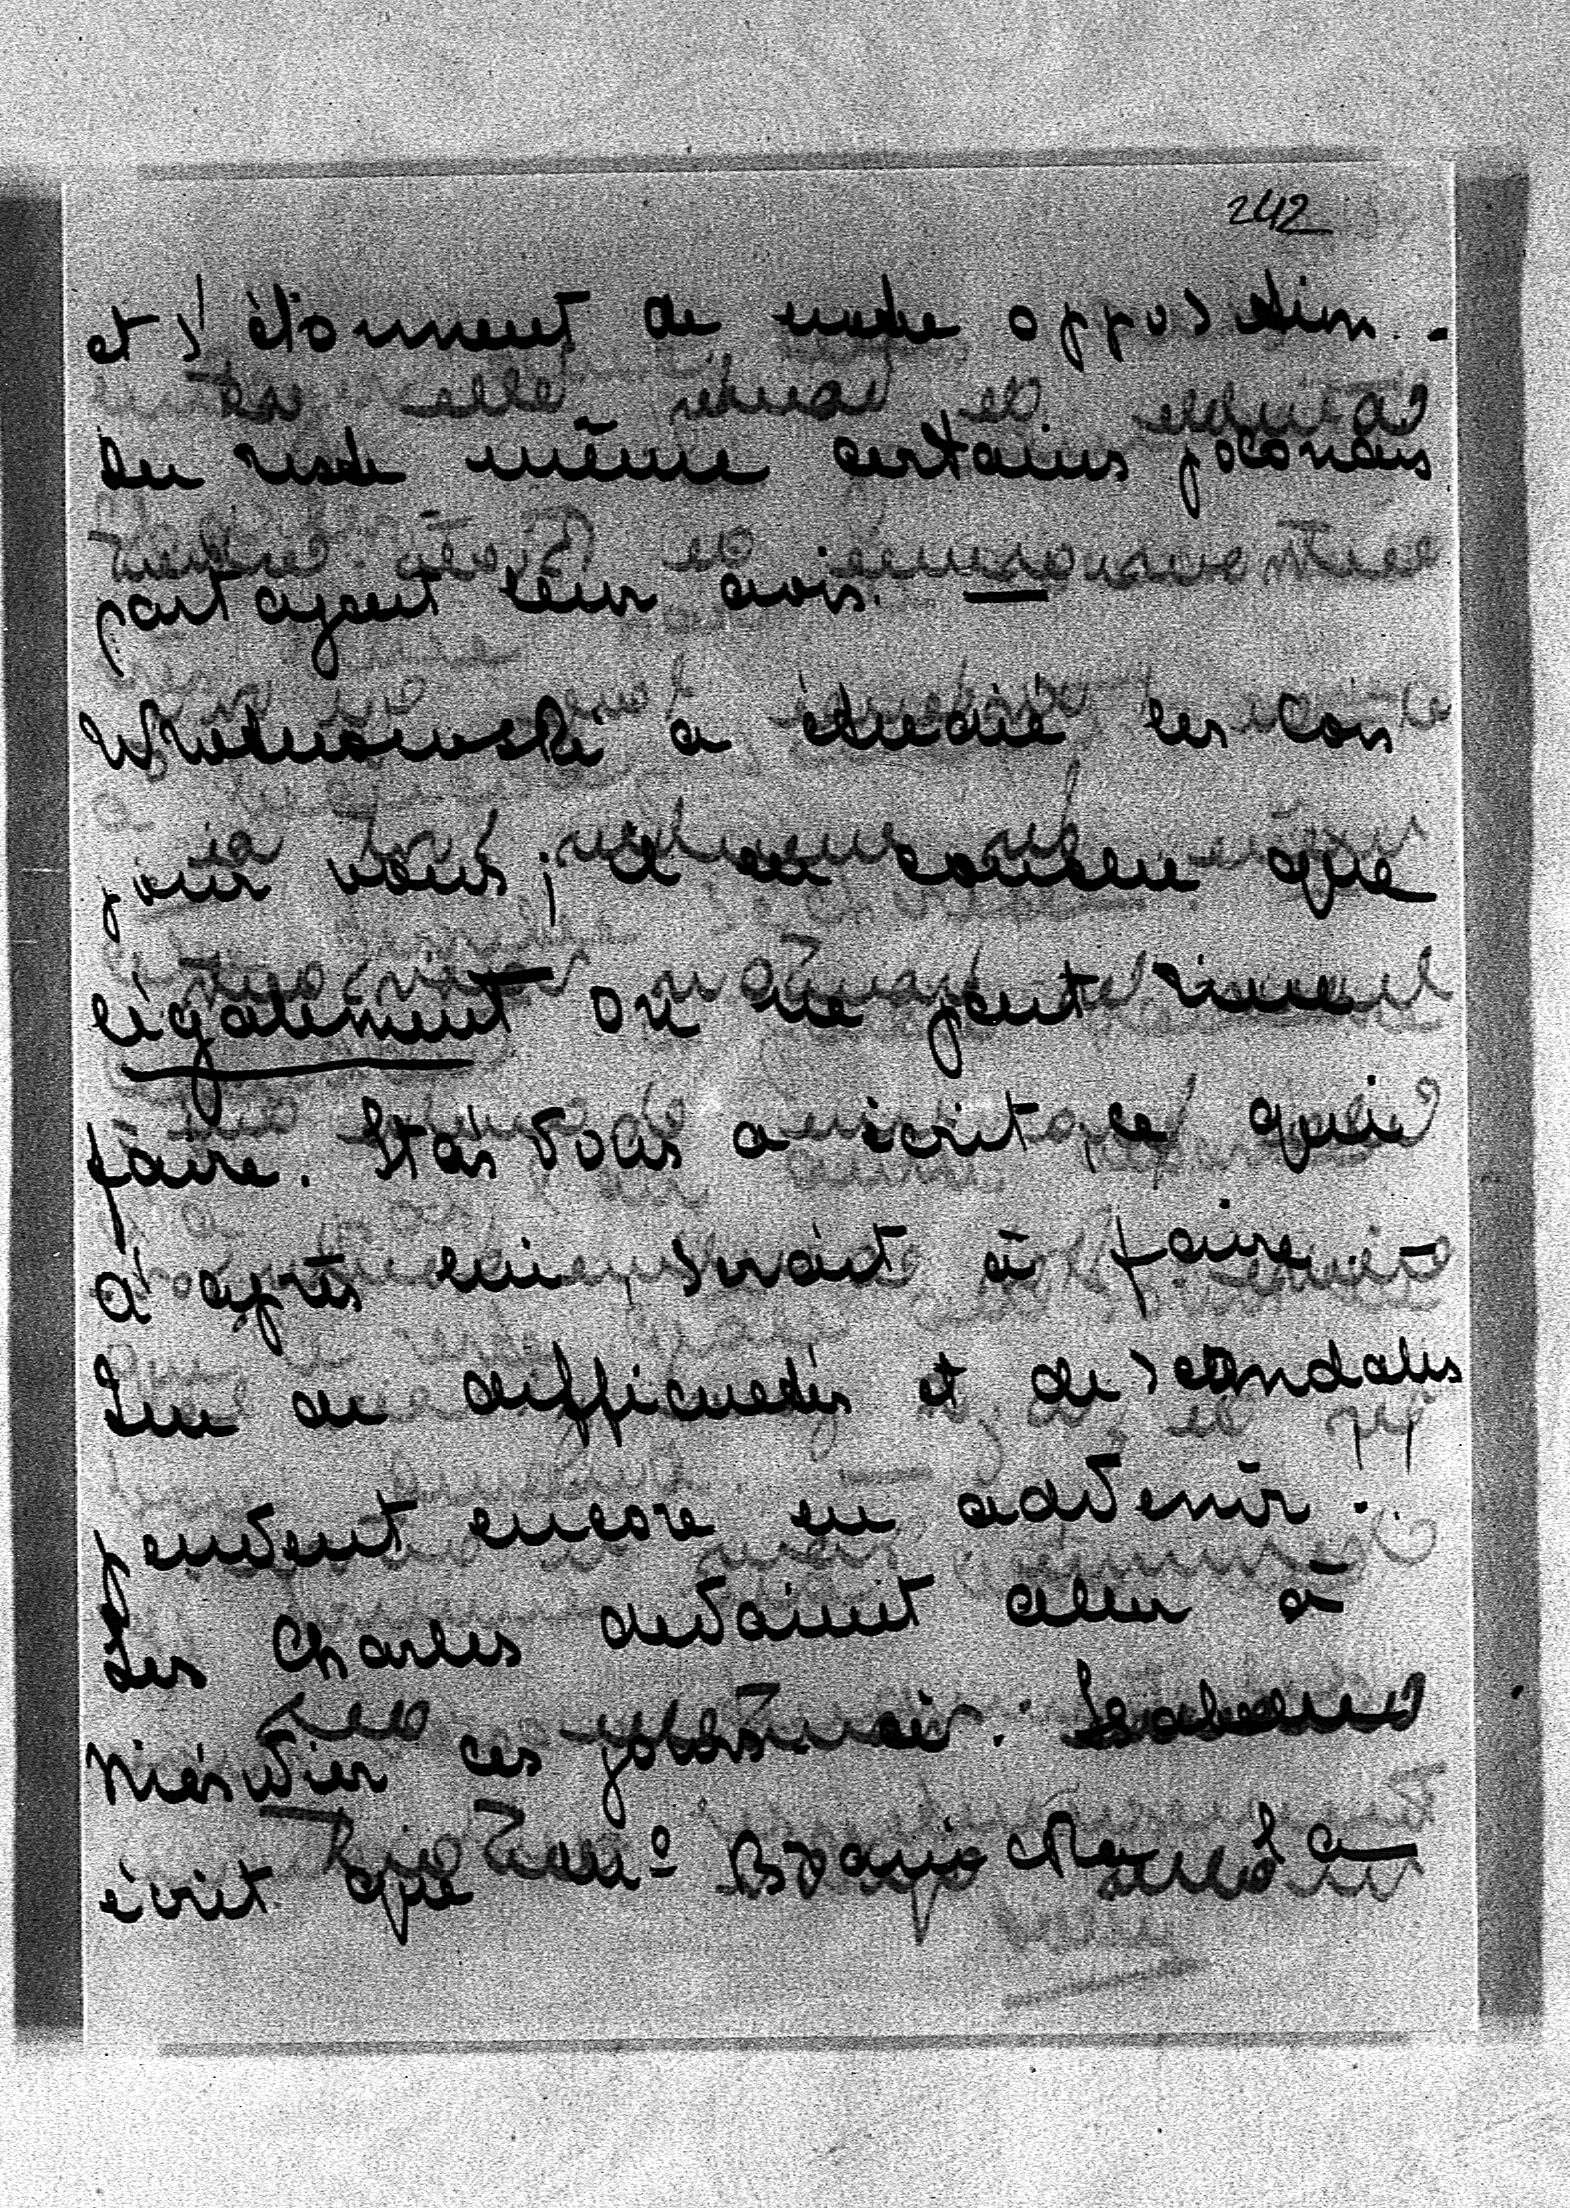 242
et s'étonnent de notre opposition.
Du reste même certains polonais
partagent leur avis. —
Wróblewski a étudié les lois
pour vous; il en conclue que
légalement on ne peut rien
faire. Staś vous a écrit, ce qui
d'après lui, serait à faire. —
Que de difficultés et de scandales
peuvent encore en advenir.
Les Charles devaient aller à
Nieśwież ces jours-ci.
écrit que